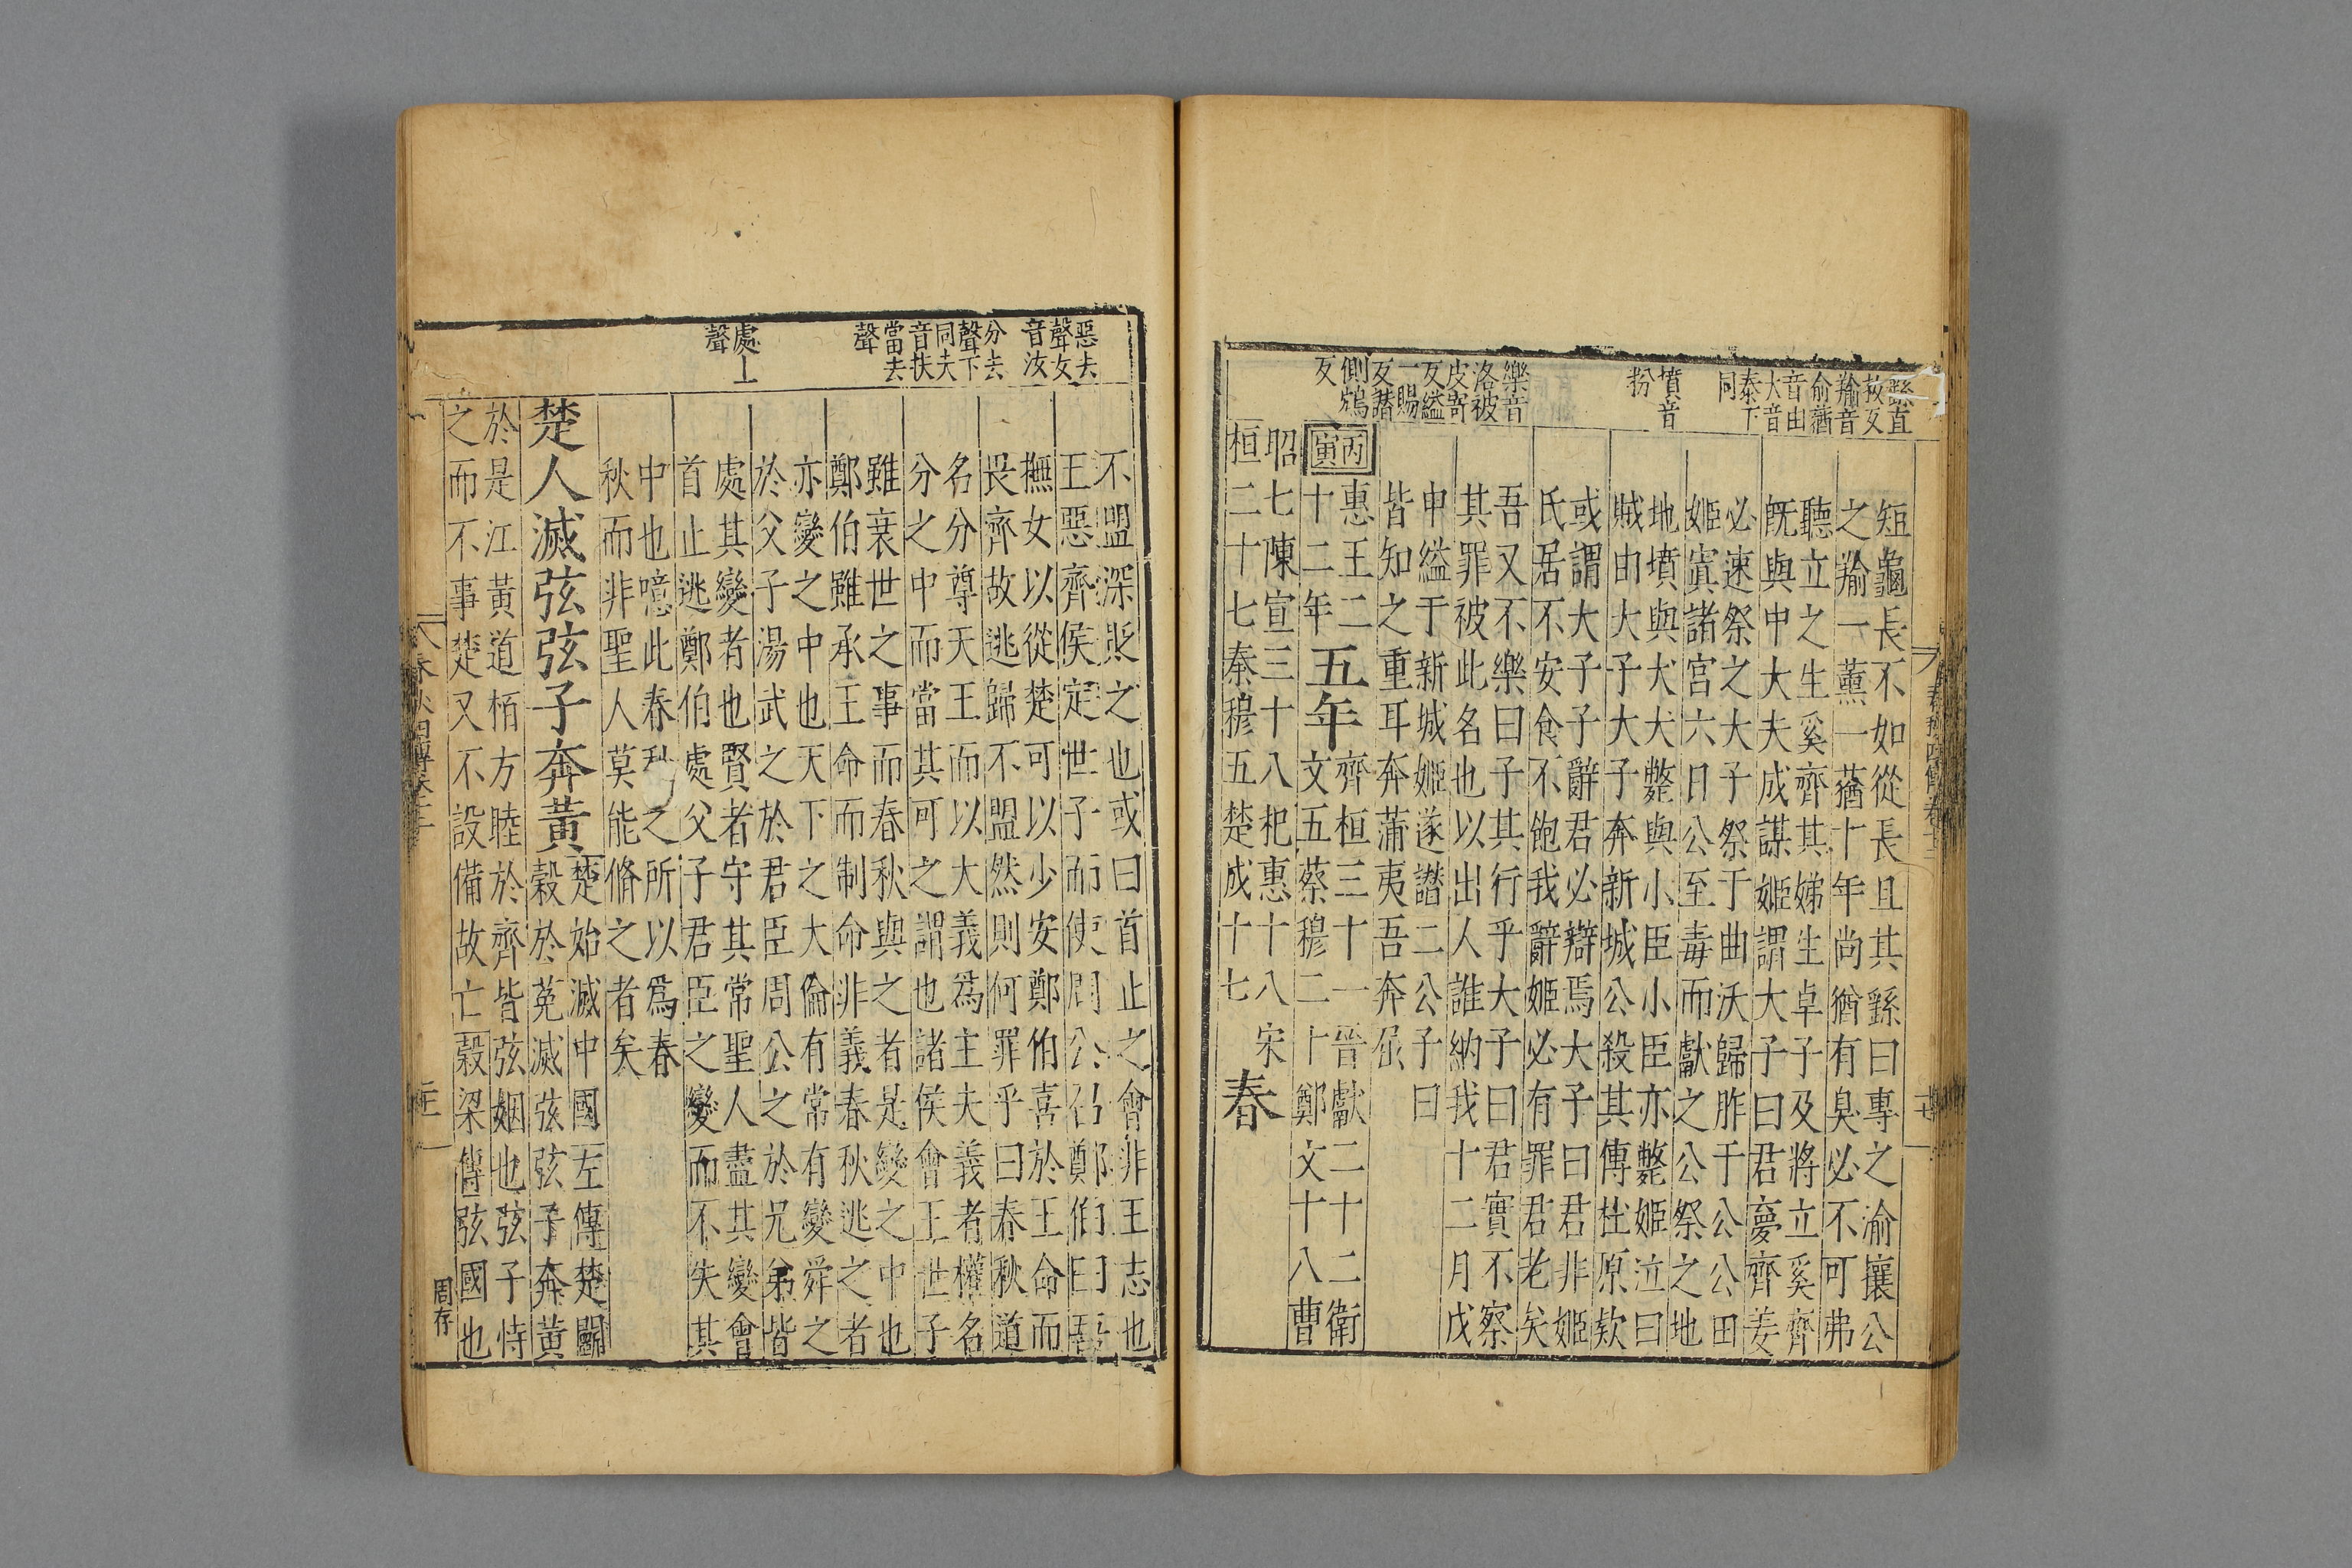 繇直
救反
羭音
俞蕕
音由
大音
泰下
同
墳音
粉
樂音
洛被
皮寄
反縊
一賜
反譖
側鴆
反
短龜長不如從長且其繇曰專之渝攘公
之羭一薰一蕕十年尚猶有臭必不可弗
聽立之生奚齊其娣生卓子及將立奚齊
旣與中大夫成謀姬謂大子曰君夢齊姜
必速祭之大子祭于曲沃歸胙于公公田
姬寘諸宮六日公至毒而獻之公祭之地
地墳與犬犬斃與小臣小臣亦斃姬泣曰
賊由大子大子奔新城公殺其傅杜原款
或謂大子子辭君必辯焉大子曰君非姬
氏居不安食不飽我辭姬必有罪君老矣
吾又不樂曰子其行乎大子曰君實不察
其罪被此名也以出人誰納我十二月戊
申縊于新城姬遂譖二公子曰
皆知之重耳奔蒲夷吾奔屈
丙寅
惠王二
十二年
五年
齊桓三十一晉獻二十二衛
文五蔡穆二十鄭文十八曹
昭七陳宣三十八杞惠十八宋
桓二十七秦穆五楚成十七
春
惡去
聲女
音汝
分去
聲下
同夫
音扶
當去
聲
處上
聲
不盟深貶之也或曰首止之會非王志也
王惡齊侯定世子而使周公召鄭伯曰吾
撫女以從楚可以少安鄭伯喜於王命而
畏齊故逃歸不盟然則何罪乎曰春秋道
名分尊天王而以大義爲主夫義者權名
分之中而當其可之謂也諸侯會王世子
雖衰世之事而春秋與之者是變之中也
鄭伯雖承王命而制命非義春秋逃之者
亦變之中也天下之大倫有常有變舜之
於父子湯武之於君臣周公之於兄弟皆
處其變者也賢者守其常聖人盡其變會
首止逃鄭伯處父子君臣之變而不失其
中也噫此春秋之所以爲春
秋而非聖人莫能脩之者矣
楚人滅弦弦子奔黃
楚始滅中國左傳楚鬬
穀於菟滅弦弦子奔黃
於是江黃道栢方睦於齊皆弦姻也弦子恃
之而不事楚又不設備故亡穀梁傳弦國也
周存